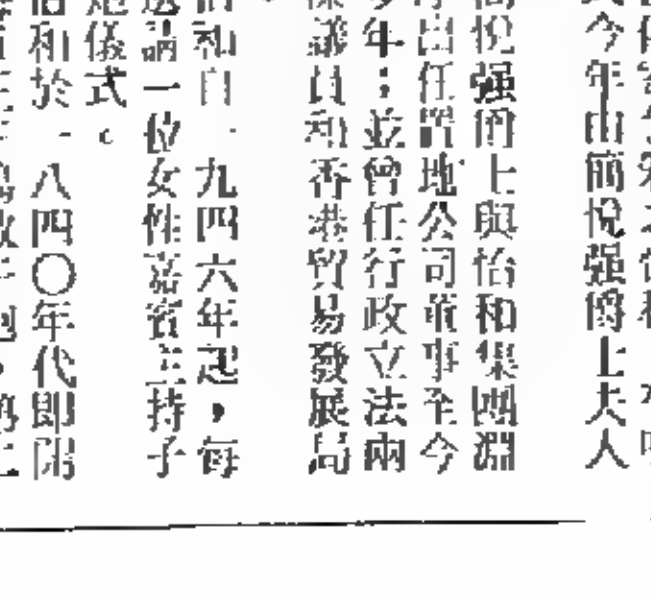 式今年由簡悅强爵士夫人
簡悅强爵士與怡和集團淵
出任置地公司董事至今
多年；並曾任行政立法兩
議員和香港貿易發展局
和自一九四六年起，每
邀請一位女性嘉賓主持子
炮儀式。
怡和於一八四〇年代即開